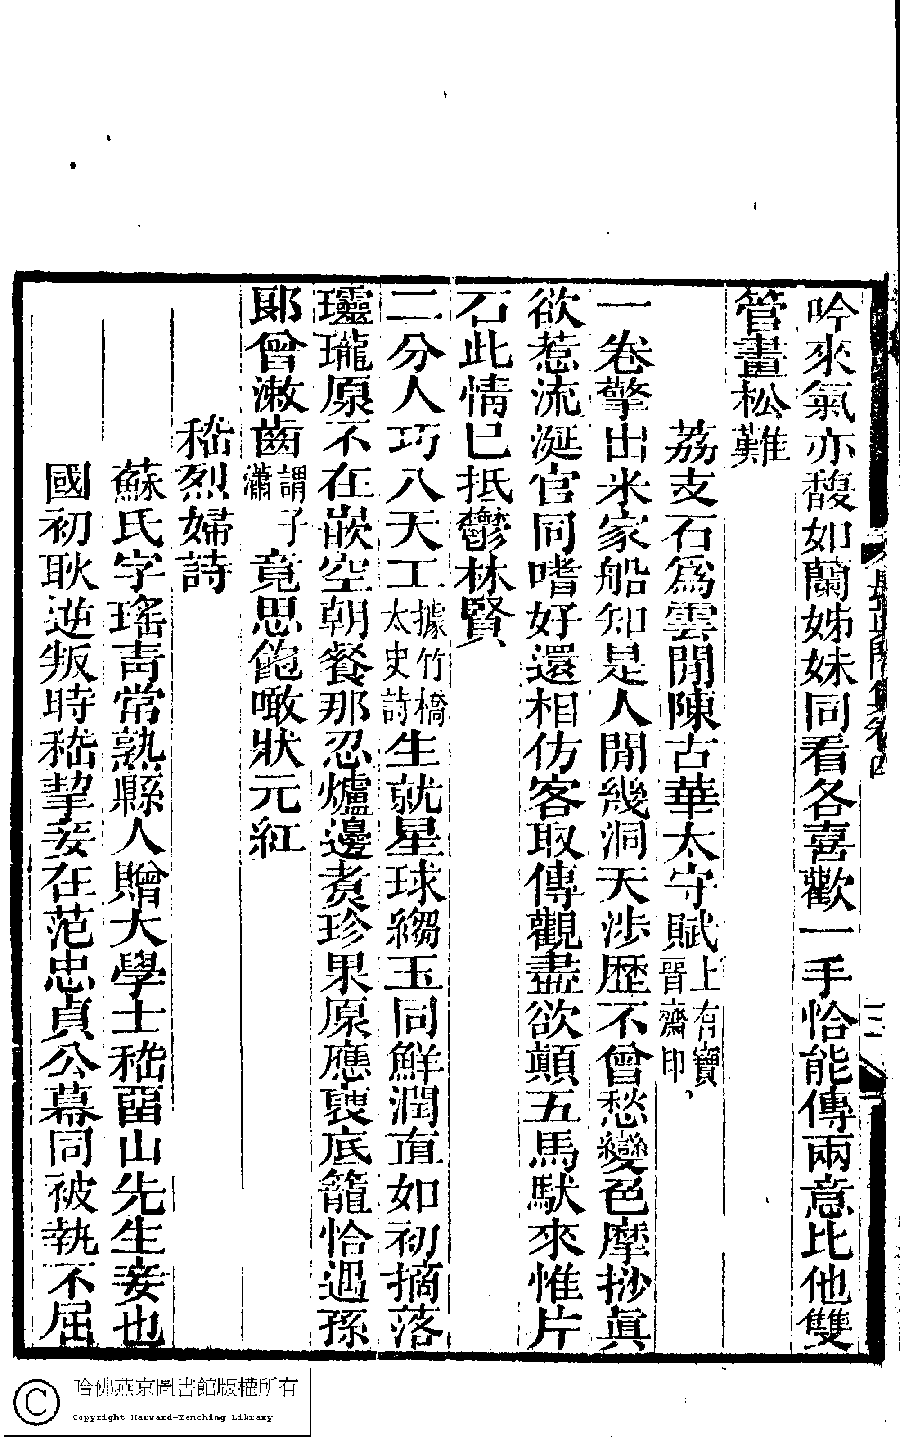 吟來氣亦馥如蘭姊妹同看各喜歡一手恰能傳兩意比他雙
管畫松難
荔支石爲雲閒陳古華太守賦上有寶晉齋印
一卷擎出米家船知是人閒幾洞天涉歷不曾愁變色摩挱眞
欲惹流涎官同嗜好還相仿客取傳觀盡欲顛五馬馱來惟片
石此情已抵鬱林賢
二分人巧八天工據竹橋太史詩生就星球縐玉同鮮潤直如初摘落
瓏瓏原不在嵌空朝餐那忍爐邊煑珍果原應褏底籠恰遇孫
郞曾漱齒謂子瀟竟思飽噉狀元紅
嵇烈婦詩
蘇氏字瑤靑常熟縣人贈大學士嵇畱山先生妾也
國初耿逆叛時嵇挈妾在范忠貞公幕同被執不屈
長眞閣集卷四
三
哈佛燕京圖書館版權所有
Copyright Harvard-Yenching Library